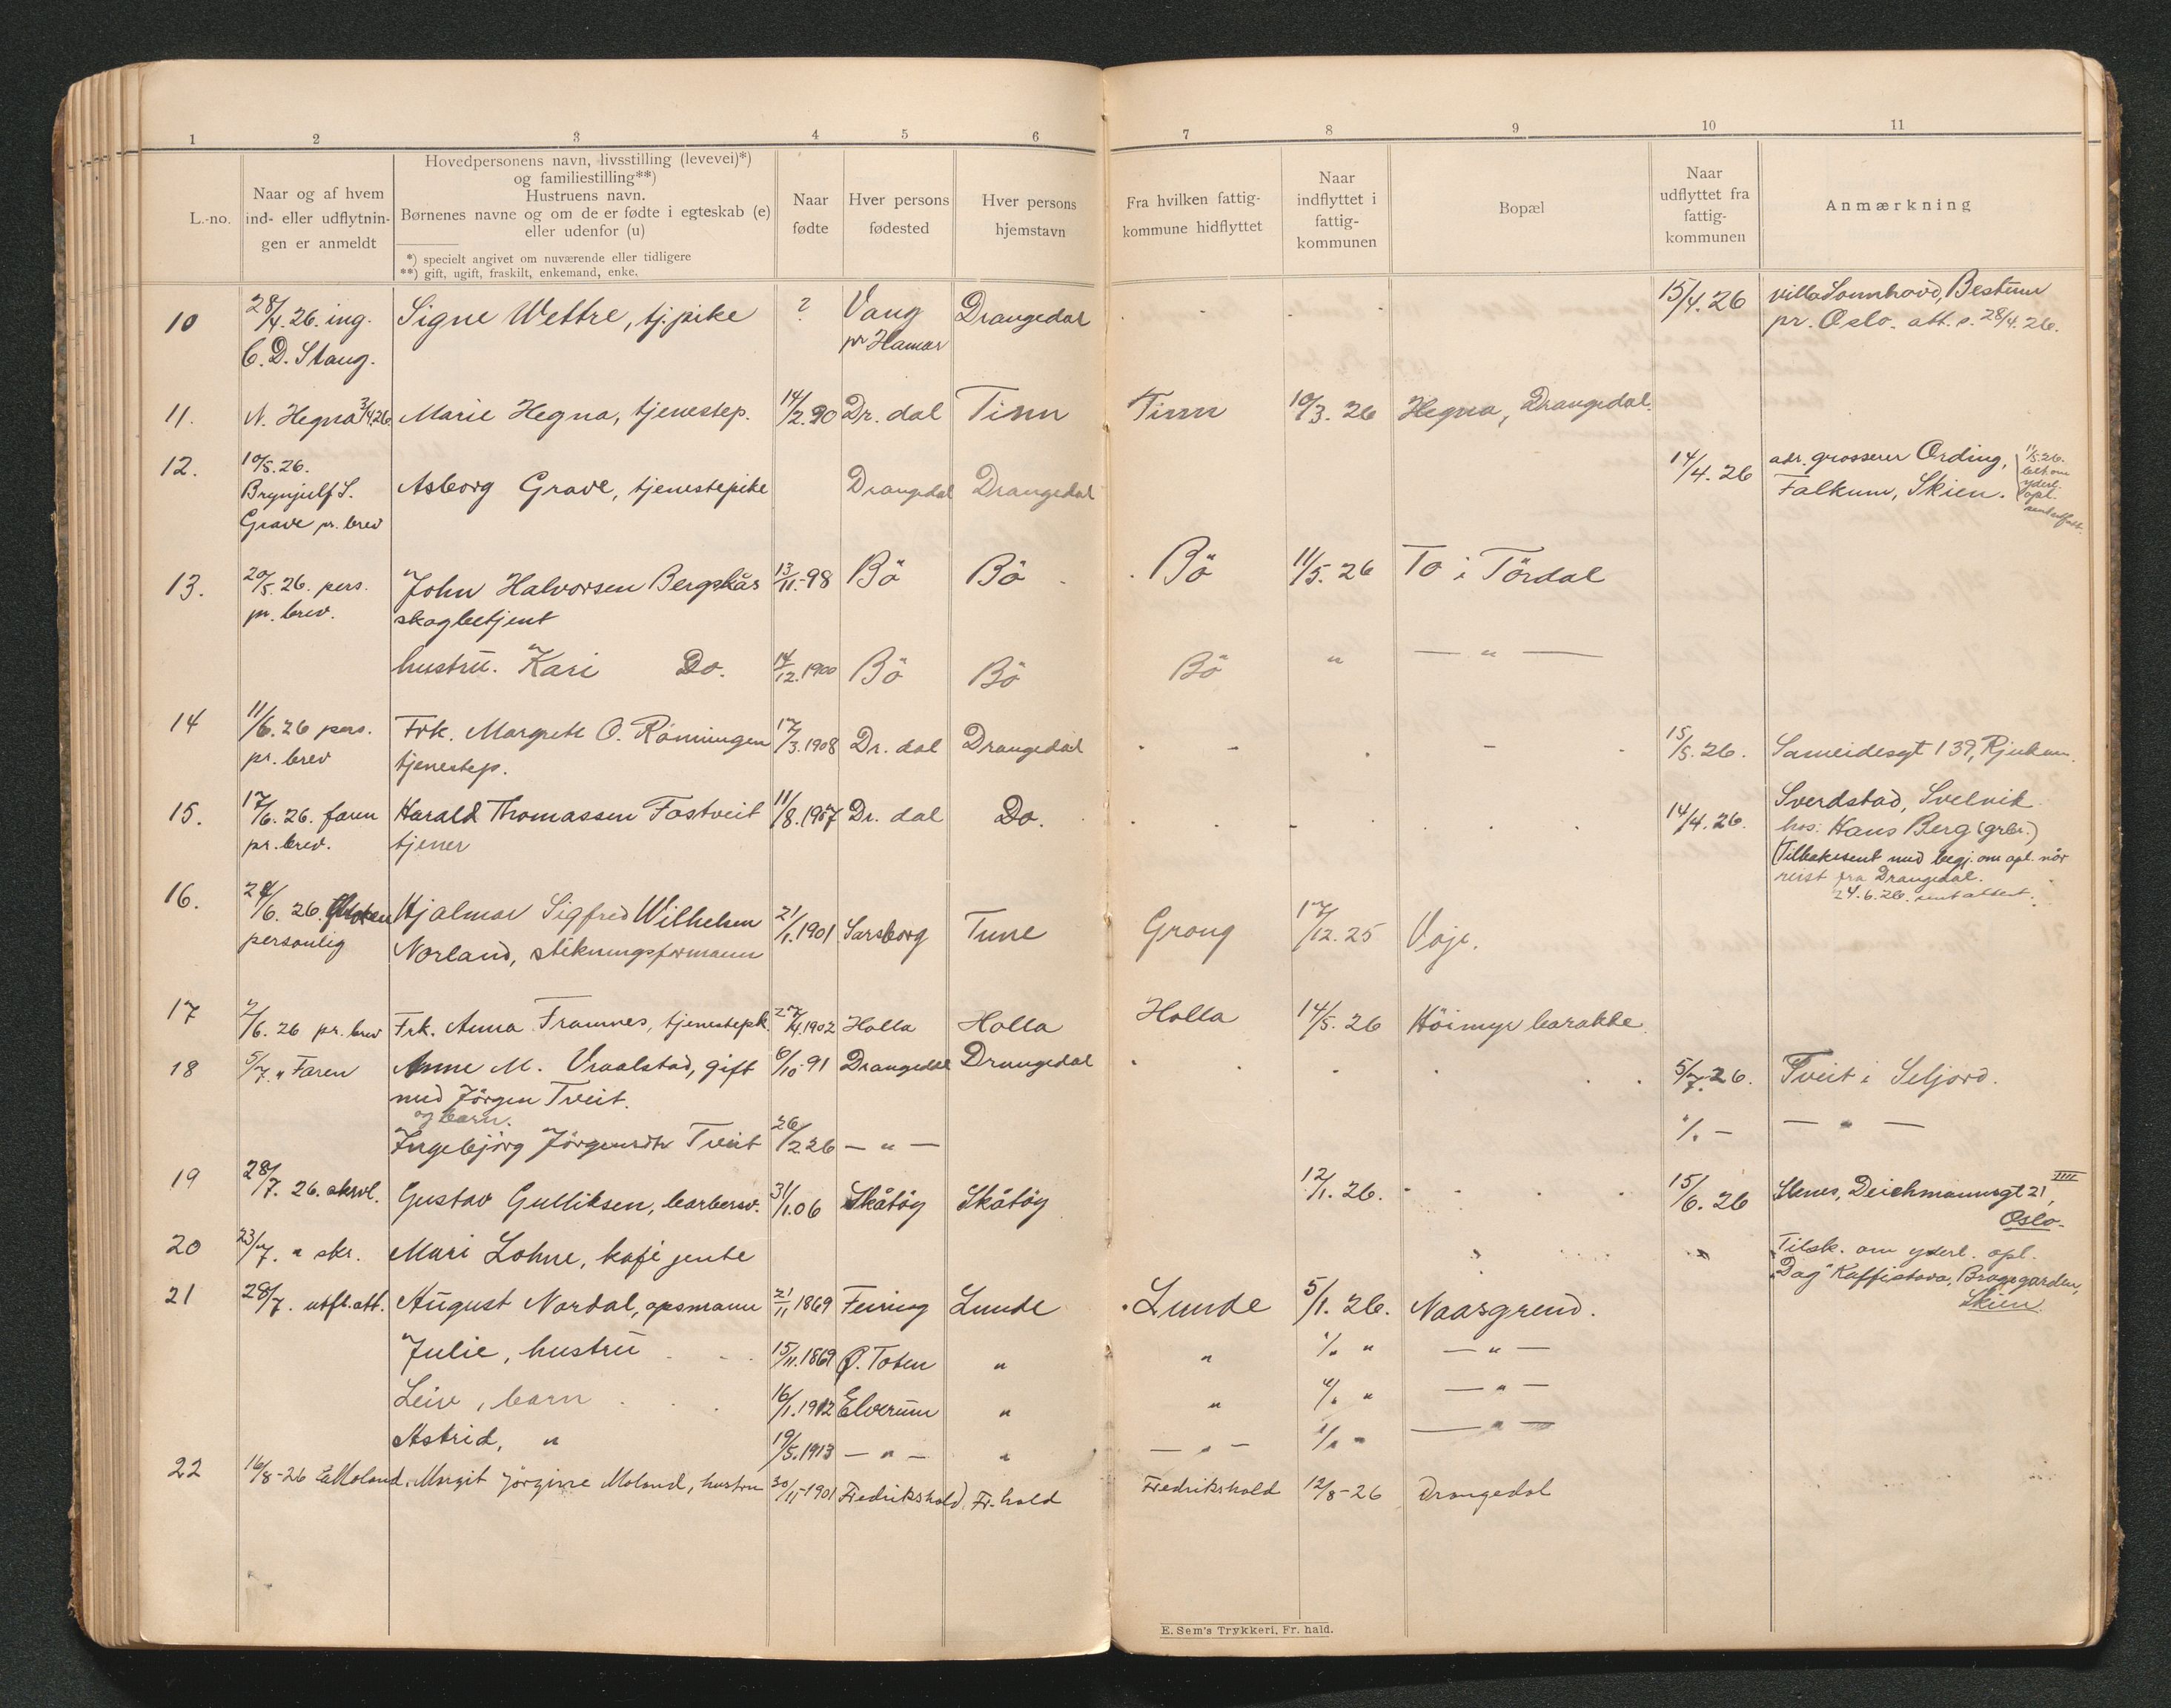 1 2 3 4 5 6 7 8 9 10 11
L.-no.
Naar og af hvem
ind- eller udflytnin-
gen er anmeldt
Hovedpersonens navn, livsstilling (levevei)*)
og familiestilling**)
Hustruens navn.
Børnenes navne og om de er fødte i egteskab (e)
eller udenfor (u)
*) specielt angivet om nuværende eller tidligere
**) gift, ugift, fraskilt, enkemand, enke.
Naar
fødte
Hver persons
fødested
Hver persons
hjemstavn
Fra hvilken fattig-
kommune hidflyttet
Naar
indflyttet i
fattig-
kommunen
Bopæl
Naar
udflyttet fra
fattig-
kommunen
Anmærkning
10 28/4.26. ing. Signe Wettre, tj.pike ? Vang Drangedal 15/4.26 villa Sonnhavd, Bestum
C.D. Stang. pr Hamar pr. Oslo. att. s. 28/4.26.
11. N. Hegna 3/4.26. Marie Hegna, tjenestep. 14/2.90 Dr. dal Tinn Tinn 10/3.26 Hegna, Drangedal.
12. 10/5.26. Asborg Grave, tjenestepike Drangedal Drangedal 14/4.26 adr. grosserer Ording, 11/5.26.
Brynjulf S. Falkum, Skien. bedt om
Grave pr. brev yderl. opl.
13. 20/5.26. pers. John Halvorsen Bergskås 13/11.-98 Bö Bö Bö 11/5.26 To i Tördal
pr. brev. skogbetjent
hustru. Kari Do. 14/12.1900 Bö Bö Bö " — " —
14 11/6.26 pers. Frk. Margrete O. Rönningen 17/3.1908 Dr. dal Drangedal 15/5.26. Sameidesgt 139, Rjukan.
pr. brev tjenestep.
15. 17/6.26. faren Harald Thomassen Fostveit 11/8.1907 Dr. dal Do. 14/4.26. Sverdstad, Svelvik
pr. brev. tjener hos: Hans Berg (grbr.)
(Tilbakesent med begj. om opl. når
reist fra Drangedal.
24.6.26. sent attest.
16. 24/6.26. Hjalmar Sigfred Wilhelsen 21/1.1901 Sarsborg Tune Grong 17/12.25 Voje.
personlig Norland, stikningsformann
17 2/6.26 pr. brev Frk. Anna Framnes, tjenestepk. 27/4.1902 Holla Holla Holla 14/5.26 Höimyr barakke.
18 5/7. " Faren Anne M. Vraalstad, gift 6/10 91 Drangedal Drangedal 5/7.26. Tveit i Seljord.
med Jörgen Tveit.
og barn.
Ingebjörg Jörgensdtr Tveit 26/2.26 — " — "/. – — " —
19 28/7.26. skrvl. Gustav Gulliksen, barbersv. 31/1.06 Skåtöy Skåtöy 12/1.26. 15/6.26 Stenes, Deichmannsgt 21, IIII
Oslo.
20 23/7. " skr. Mari Lohne, kafé jente " Tilsk. om yderl. opl.
"Dag" Kaffistova, Bragegarden,
Skien.
21 28/7. utfl.att. August Nordal, opsmann 21/11 1869 Feiring Lunde Lunde 5/1.26. Naasgrend.
Julie, hustru 15/11.1869 Ø. Toten " " "/. " — " —
Leiv, barn 16/1.1912 Elverum " " "/. " — " —
Astrid, " 19/5.1913 — " — " — " — "/. " — " —
22 16/8-26 E. Moland. Margit Jörgine Moland, hustru 30/11-1901 Fredrikshald, Fr. hald Fredrikshald 12/8-26 Drangedal
E. Sem's Trykkeri, Fr. hald.